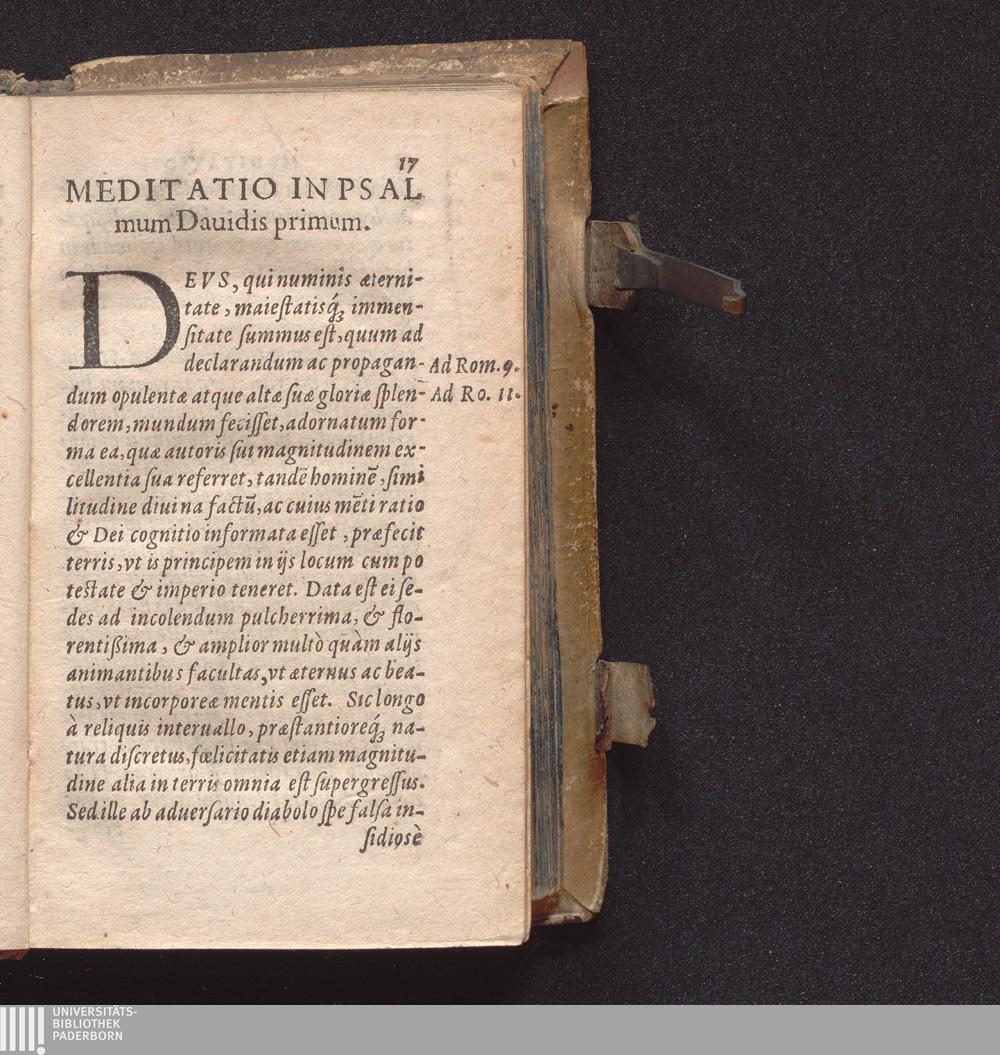 17
MEDITATIO IN PSAL
mum Dauidis primum.
DEVS, qui numinis æterni-
tate, maiestatisq́; immen-
sitate summus est, quum ad
declarandum ac propagan- Ad Rom. 9.
dum opulentæ atque altæ suæ gloriæ splen- Ad Ro. 11.
dorem, mundum fecisset, adornatum for-
ma ea, quæ autoris sui magnitudinem ex-
cellentia sua referret, tandē hominē, simi
litudine diuina factū, ac cuius mēti ratio
& Dei cognitio informata esset, præfecit
terris, vt is principem in ijs locum cum po
testate & imperio teneret. Data est ei se-
des ad incolendum pulcherrima, & flo-
rentißima, & amplior multò quàm alijs
animantibus facultas, vt æternus ac bea-
tus, vt incorporeæ mentis esset. Sic longo
à reliquis interuallo, præstantioreq́; na-
tura discretus, fœlicitatis etiam magnitu-
dine alia in terris omnia est supergressus.
Sed ille ab aduersario diabolo spe falsa in-
sidiosè
UNIVERSITÄTS-
BIBLIOTHEK
PADERBORN